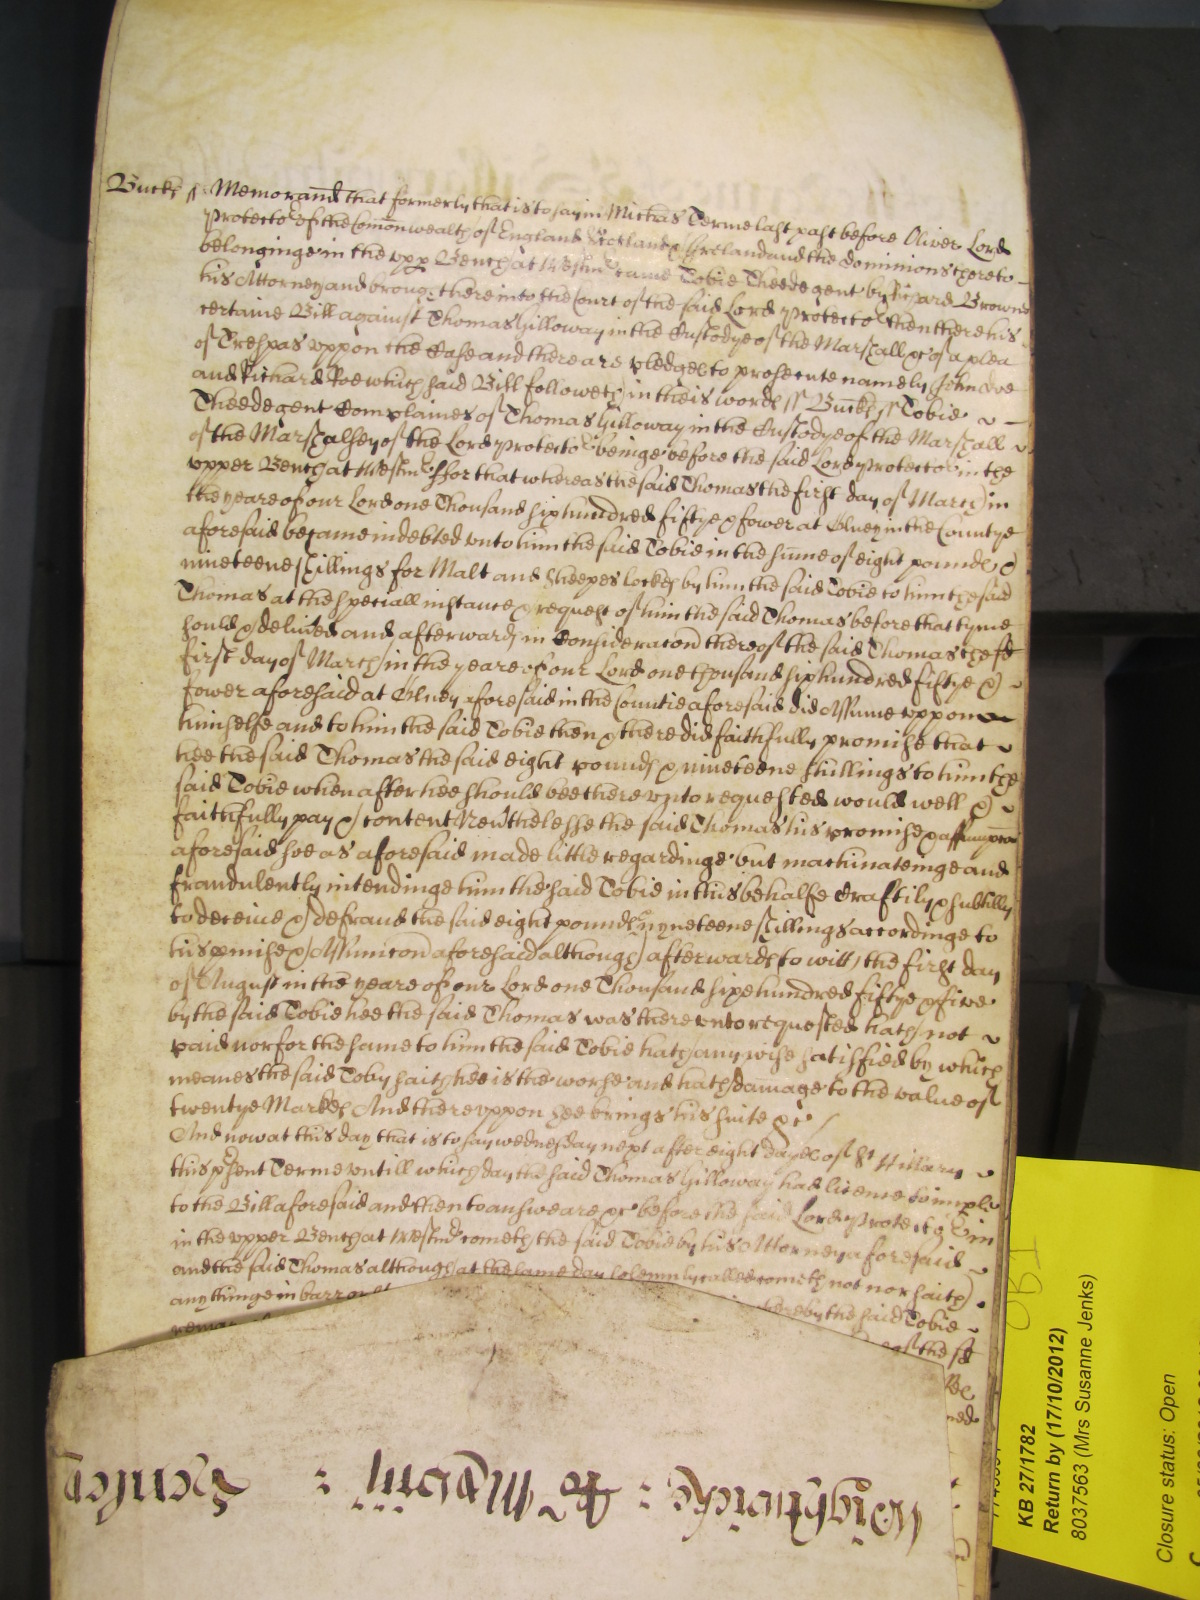 Bucks ss Memorand that formerly that is to say in Michas Terme last past before Oliver Lord
Protector of the Comonwealth of England Scotland & Ireland and the dominions thereto
belonginge in the upp Bench at Westmr came Tobie Theede gent by Richard Browne
his Attorney and brought here into the Court of the said Lord Protector then there his
certaine Bill against Thomas Gilloway in the Custodye of the Marshall &c of a plea
of Trespas uppon the Case and there are pledges to prosecute namely John Doe
and Richard Roe which said Bill followeth in theis words ss Bucks ss Tobie
Theede gent Complaines of Thomas Gilloway in the Custodye of the Marshall
of the Marshalsey of the Lord Protector beinge before the said Lord Protector in the
upper Bench at Westmr ffor that whereas the said Thomas the first day of March in
the yeare of our Lord one Thousand six hundred fiftye & fower at Olney in the Countye
aforesaid became indebted unto him the said Tobie in the sume of eight pounds &
nineteene shillings for Malt and sheepes lockes by him the said Tobie to him the said
Thomas at the speciall instance & request of him the said Thomas before that tyme
sould & delived and afterwards in Consideracon thereof the said Thomas the sd
first day of March in the yeare of our Lord one thousand six hundred fiftye &
fower aforesaid at Olney aforesaid in the Countie aforesaid did Assume uppon
himselfe and to him the said Tobie then & there did faithfully promise that
hee the said Thomas the said eight pounds & nineteene shillings to him the
said Tobie when after hee should bee thereunto requested would well &
faithfully pay & content Nevthelesse the said Thomas his promise & assumpcon
aforesaid soe as aforesaid made little regardinge but machinateinge and
fraudulently intendinge him the said Tobie in this behalfe Craftily & subtilly
to deceive & defraud the said eight pounds & nyneteene shillings accordinge to
his pmise & Assumcon aforesaid although afterwards to witt the first day
of August in the yeare of our Lord one Thousand sixe hundred fiftye & five
by the said Tobie hee the said Thomas was thereunto requested hath not
paid nor for the same to him the said Tobie hath any wise satisfied by which
meanes the said Toby saith hee is the worse and hath damage to the value of
twentye Markes And thereuppon hee brings his suite &c
And now at this day that is to say wednesday next after eight dayes of St Hillary
this psent Terme untill which day the said Thomas Gilloway had licence to imple
to the Bill aforesaid and then to answeare &c before the said Lord Protector in
in the upper Bench at Westmr cometh the said Tobie by his Attorney aforesaid
and the said Thomas although at the same day solemnly called cometh not nor saith
any thinge in barr or whereby the said Tobie
of the sd
Wightwicke
KB 27/1782
Return by (17/10/2012)
8037563 (Mrs Susanne Jenks)
Closure status: Open